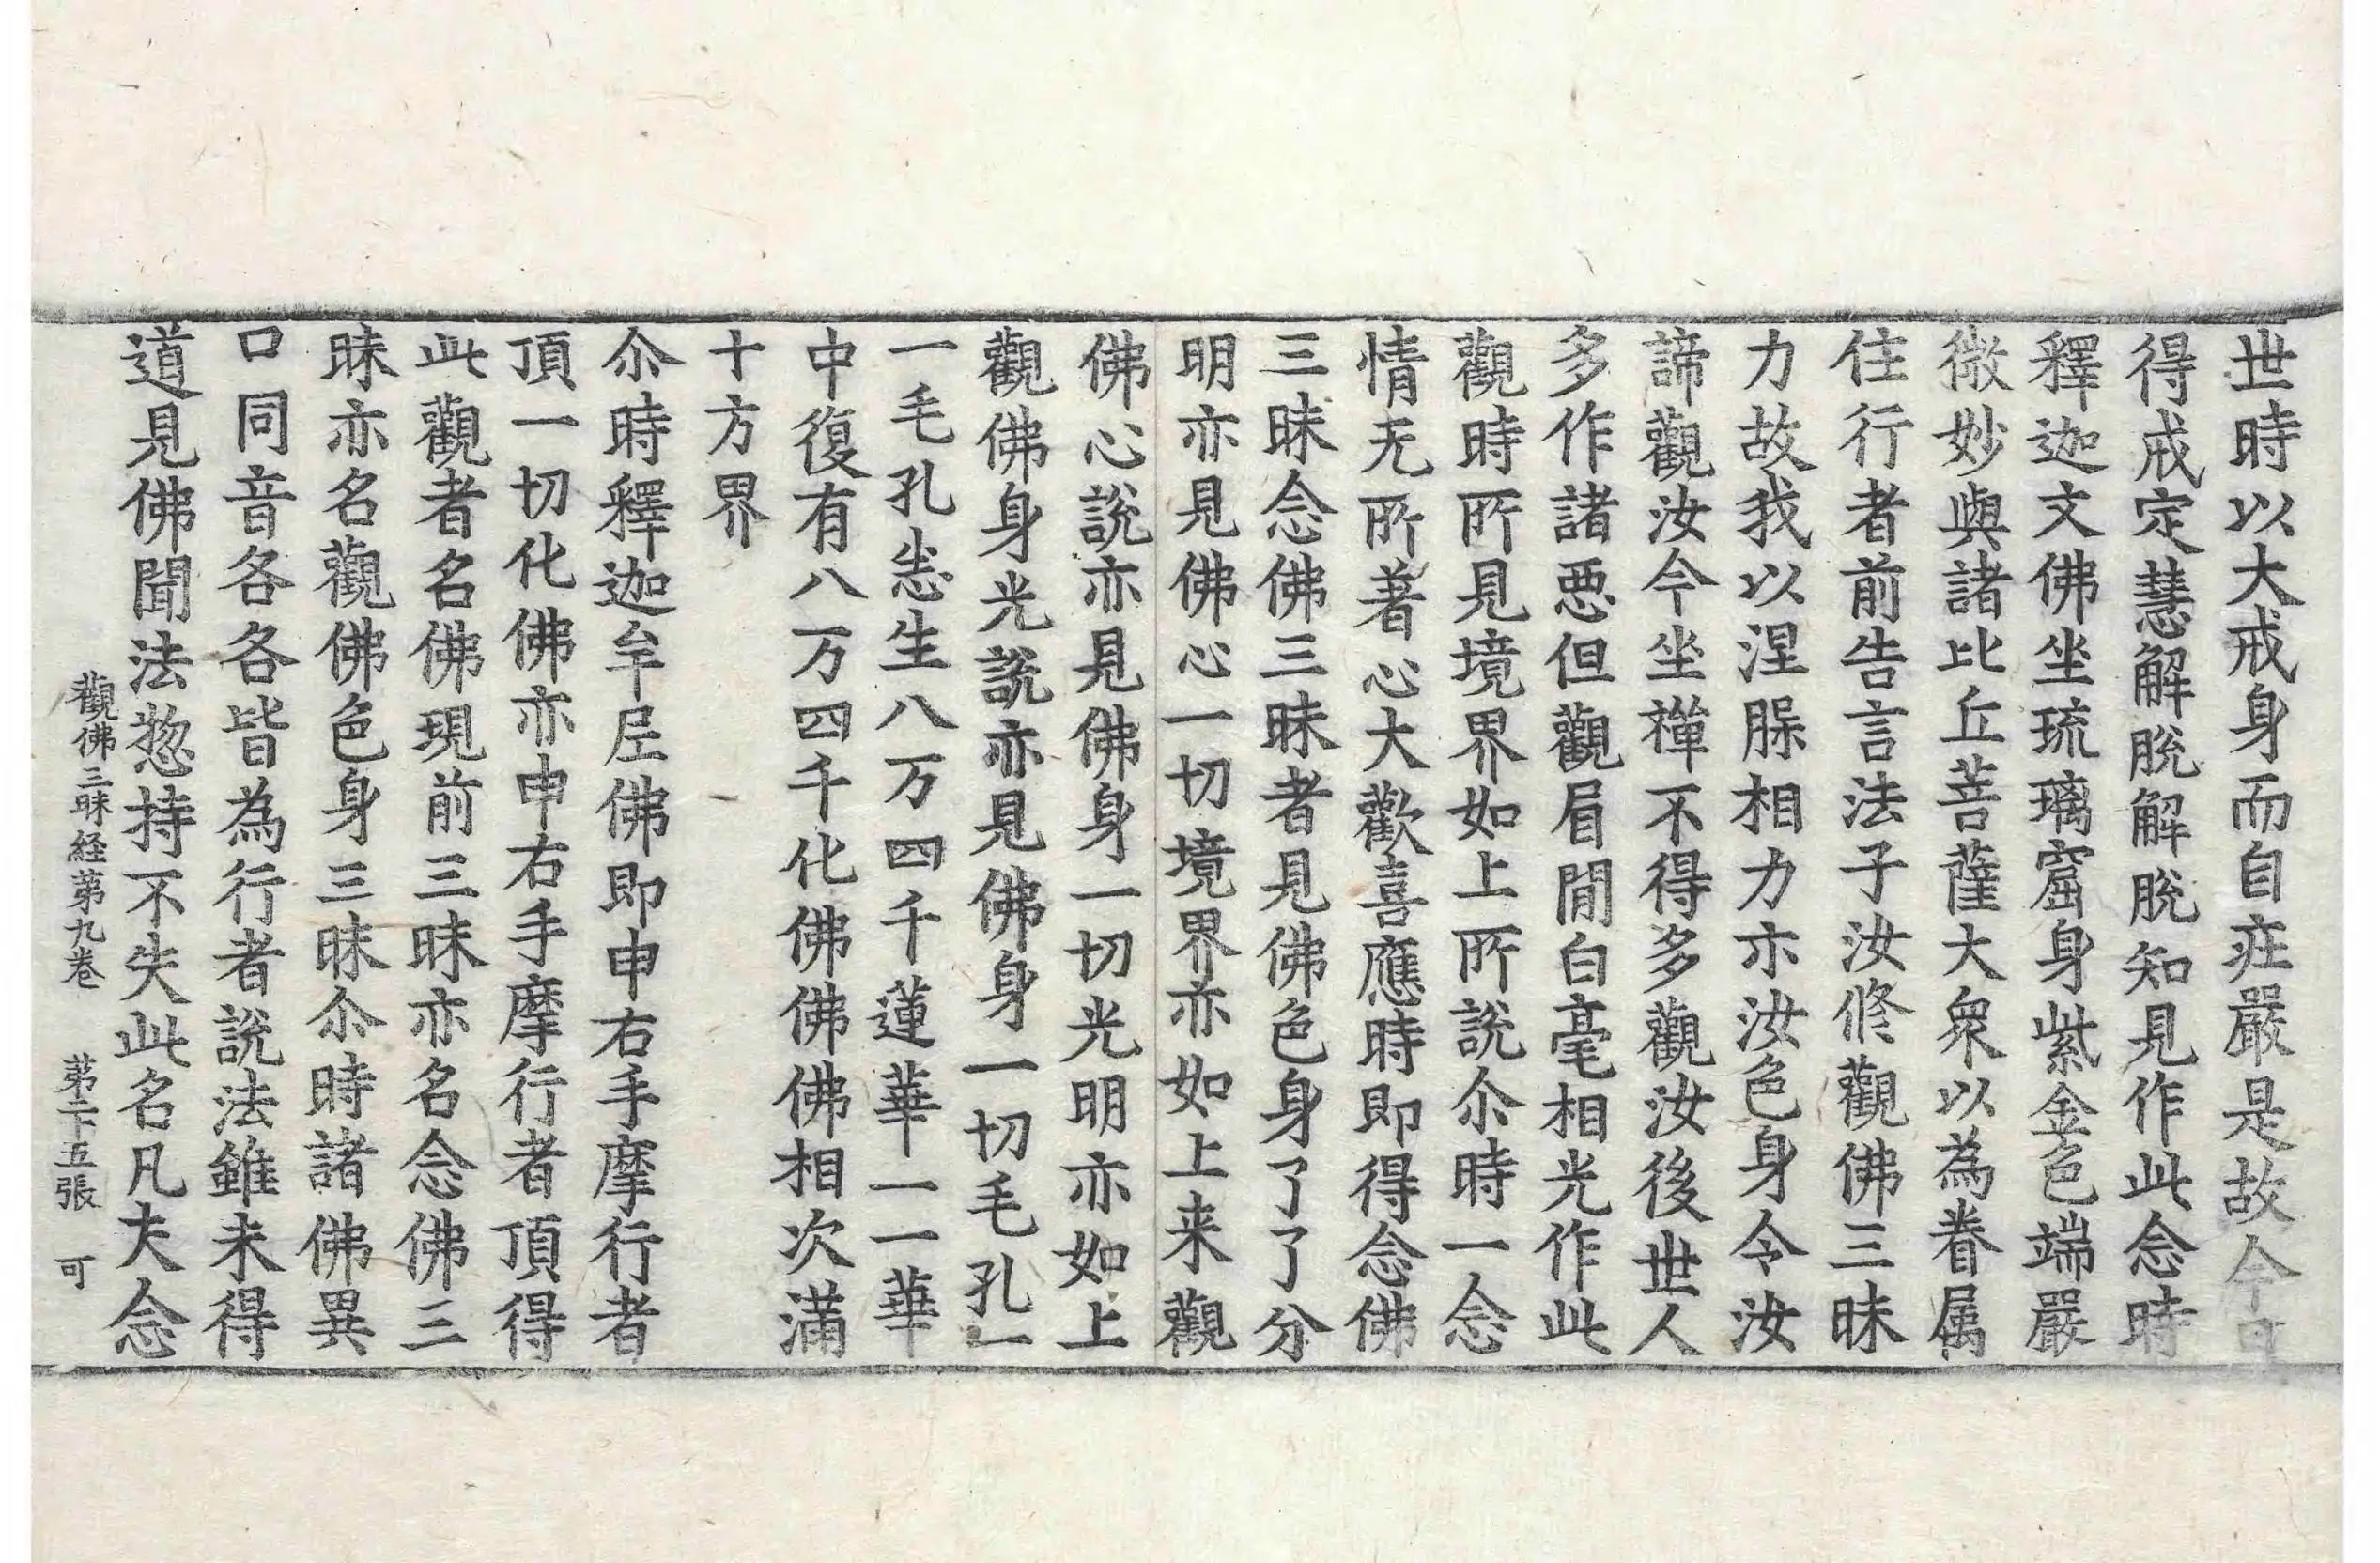 世時以大戒身而自庄嚴是故今日
得戒定慧解脫解脫知見作此念時
釋迦文佛坐琉璃窟身紫金色端嚴
微妙與諸比丘菩薩大衆以為眷属
住行者前告言法子汝修觀佛三昧
力故我以涅槃相力示汝色身令汝
諦觀汝今坐禪不得多觀汝後世人
多作諸惡但觀眉間白毫相光作此
觀時所見境界如上所說尒時一念
情无所著心大歡喜應時即得念佛
三昧念佛三昧者見佛色身了了分
明亦見佛心一切境界亦如上来觀
佛心說亦見佛身一切光明亦如上
觀佛身光說亦見佛身一切毛孔一
一毛孔悉生八万四千蓮華一一華
中復有八万四千化佛佛佛相次滿
十方界
尒時釋迦牟尼佛即申右手摩行者
頂一切化佛亦申右手摩行者頂得
此觀者名佛現前三昧亦名念佛三
昧亦名觀佛色身三昧尒時諸佛異
口同音各各皆為行者說法雖未得
道見佛聞法惣持不失此名凡夫念
觀佛三昧経苐九卷　苐二十五張　可